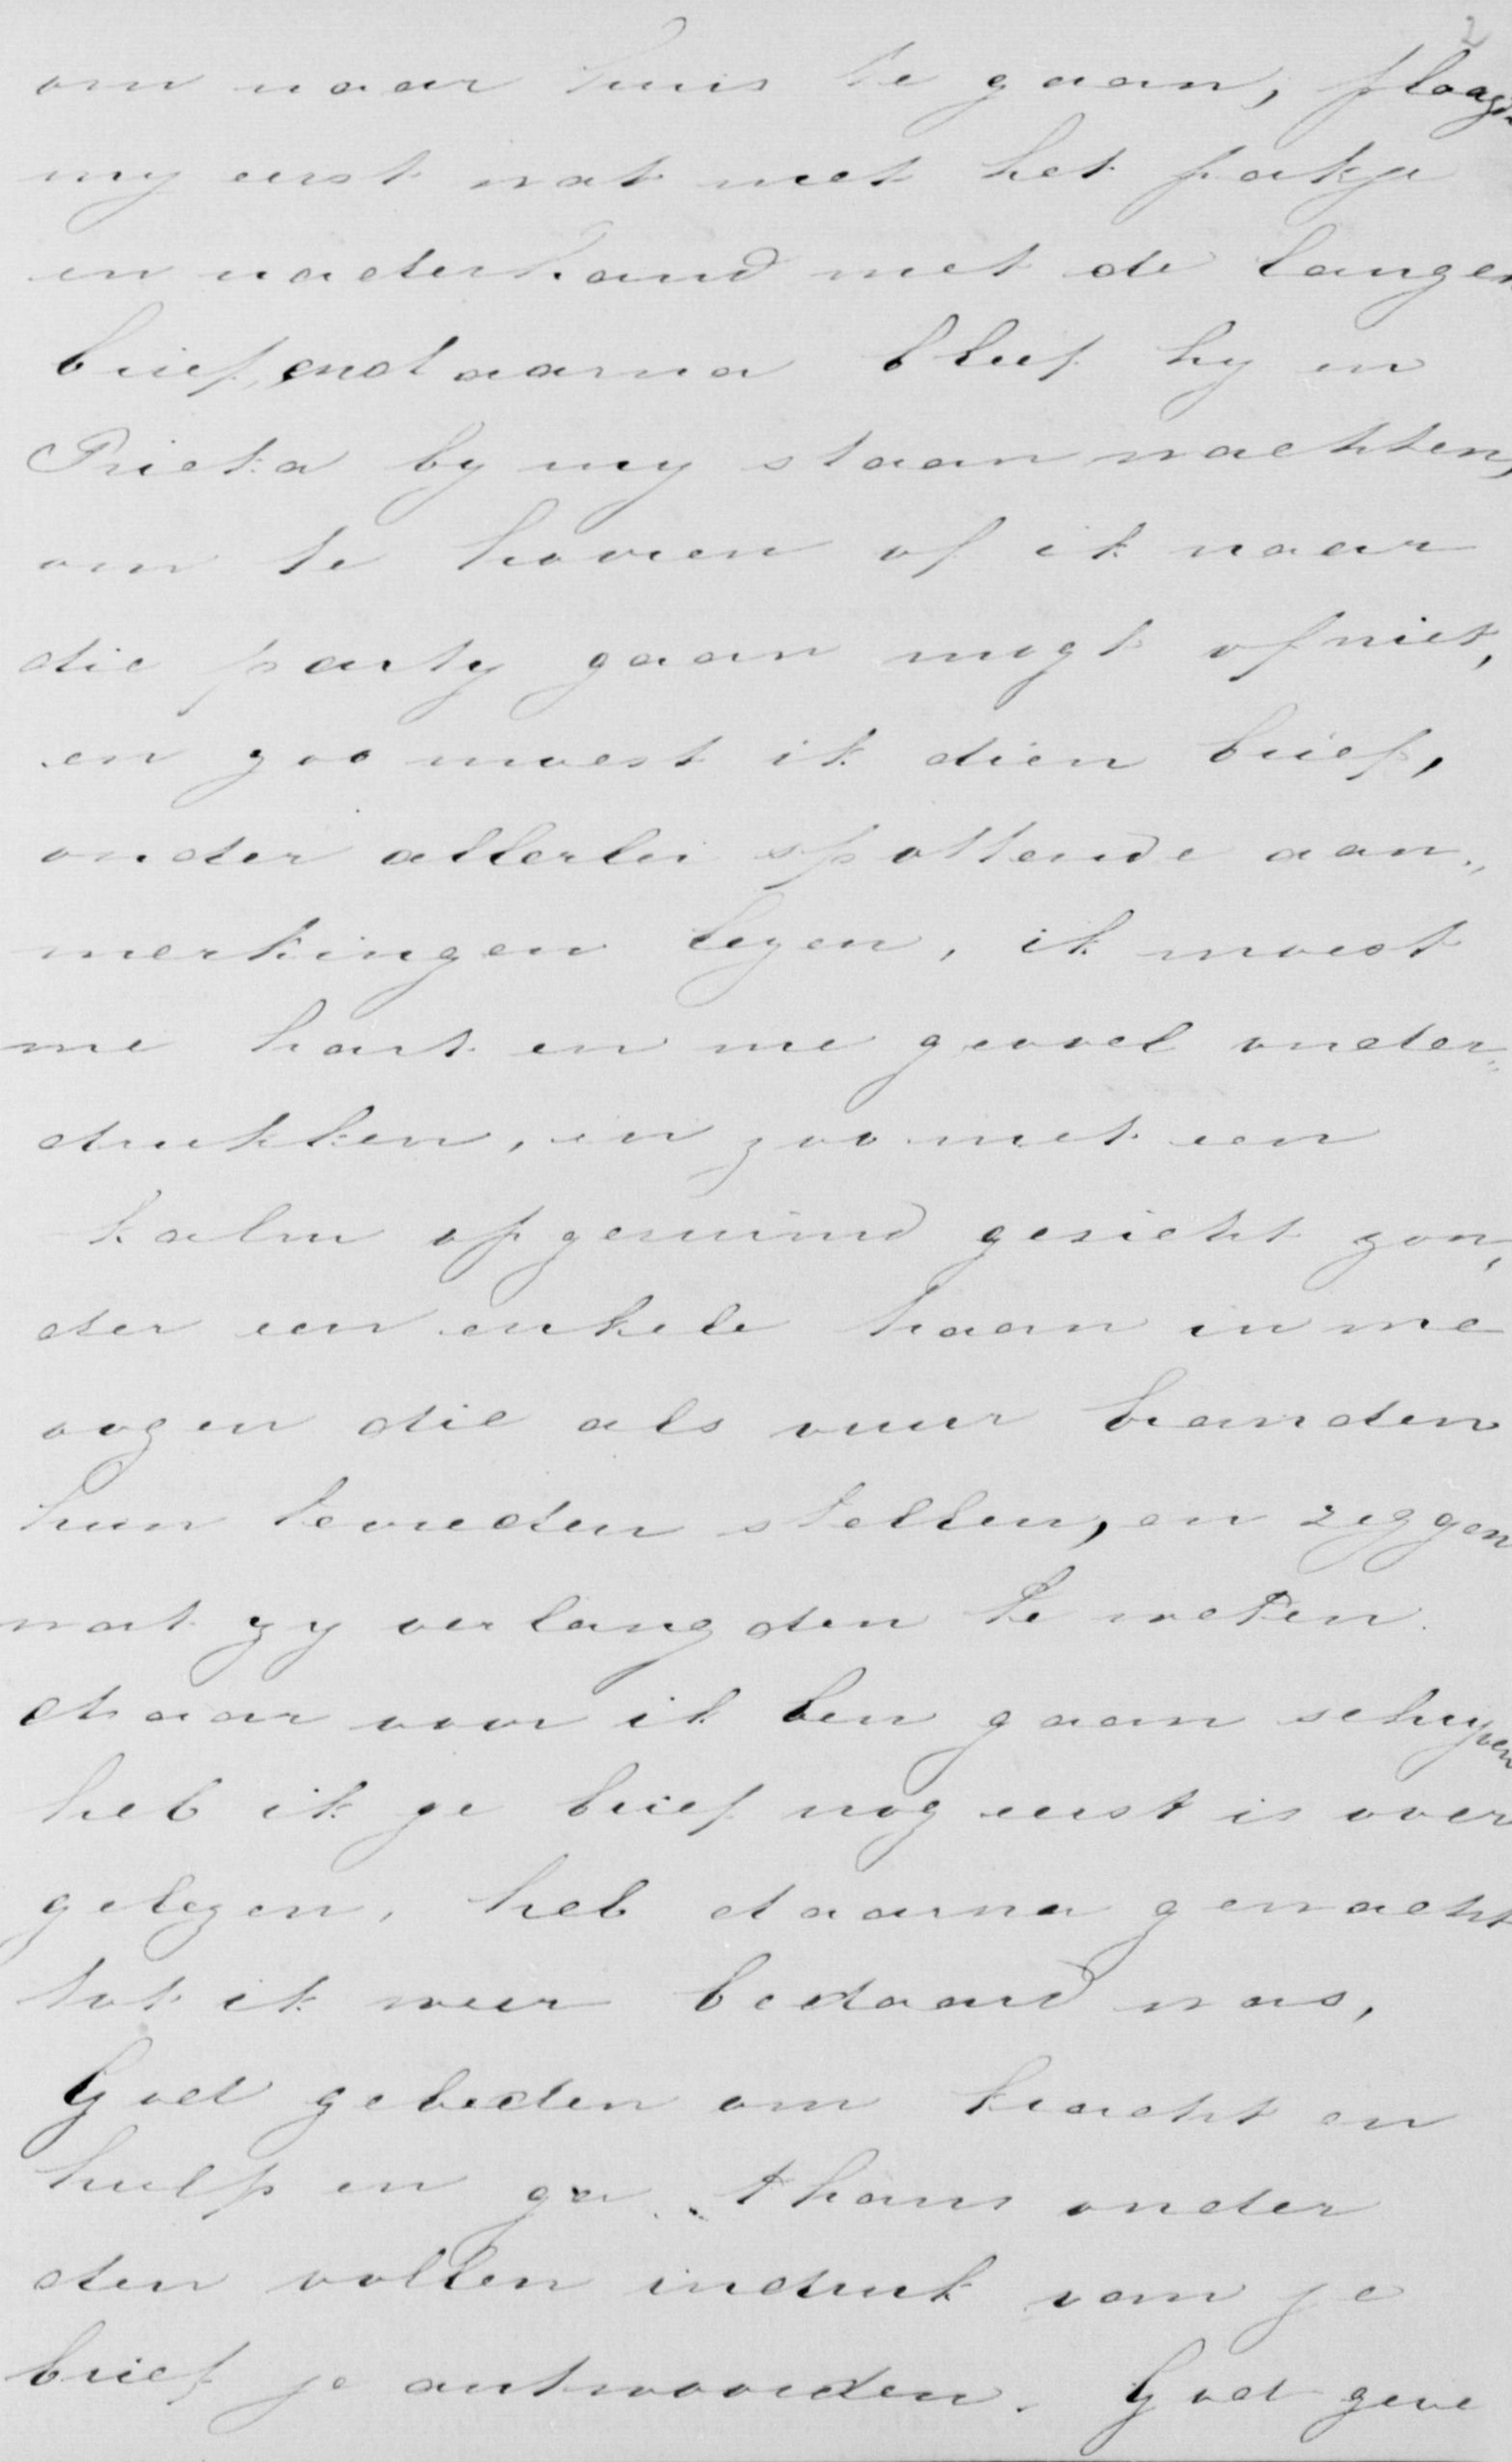 2
om naar huis te gaan, plaagde
my eerst wat met het pakje
en naderhand met de langen
brief, en daarna bleef hy en
Prieka by my staan wachten,
om te hooren of ik naar
die party gaan mogt of niet,
en zoo moest ik dien brief,
onder allerlei spottende aan„
merkingen lezen, ik moest
me hart en me gevoel onder„
drukken, en zoo met een
kalm opgeruimd gezicht zon„
der een enkele traan in me
oogen die als vuur branden
hun tevreden stellen, en zeggen
wat zy verlangden te weten.
daar voor ik ben gaan schryven
heb ik je brief nog eerst is over
gelezen, heb daarna gewacht
tot ik weer bedaard was,
God gebeden om kracht en
hulp en ga thans onder
den vollen indruk van je
brief je antwoorden. God geve